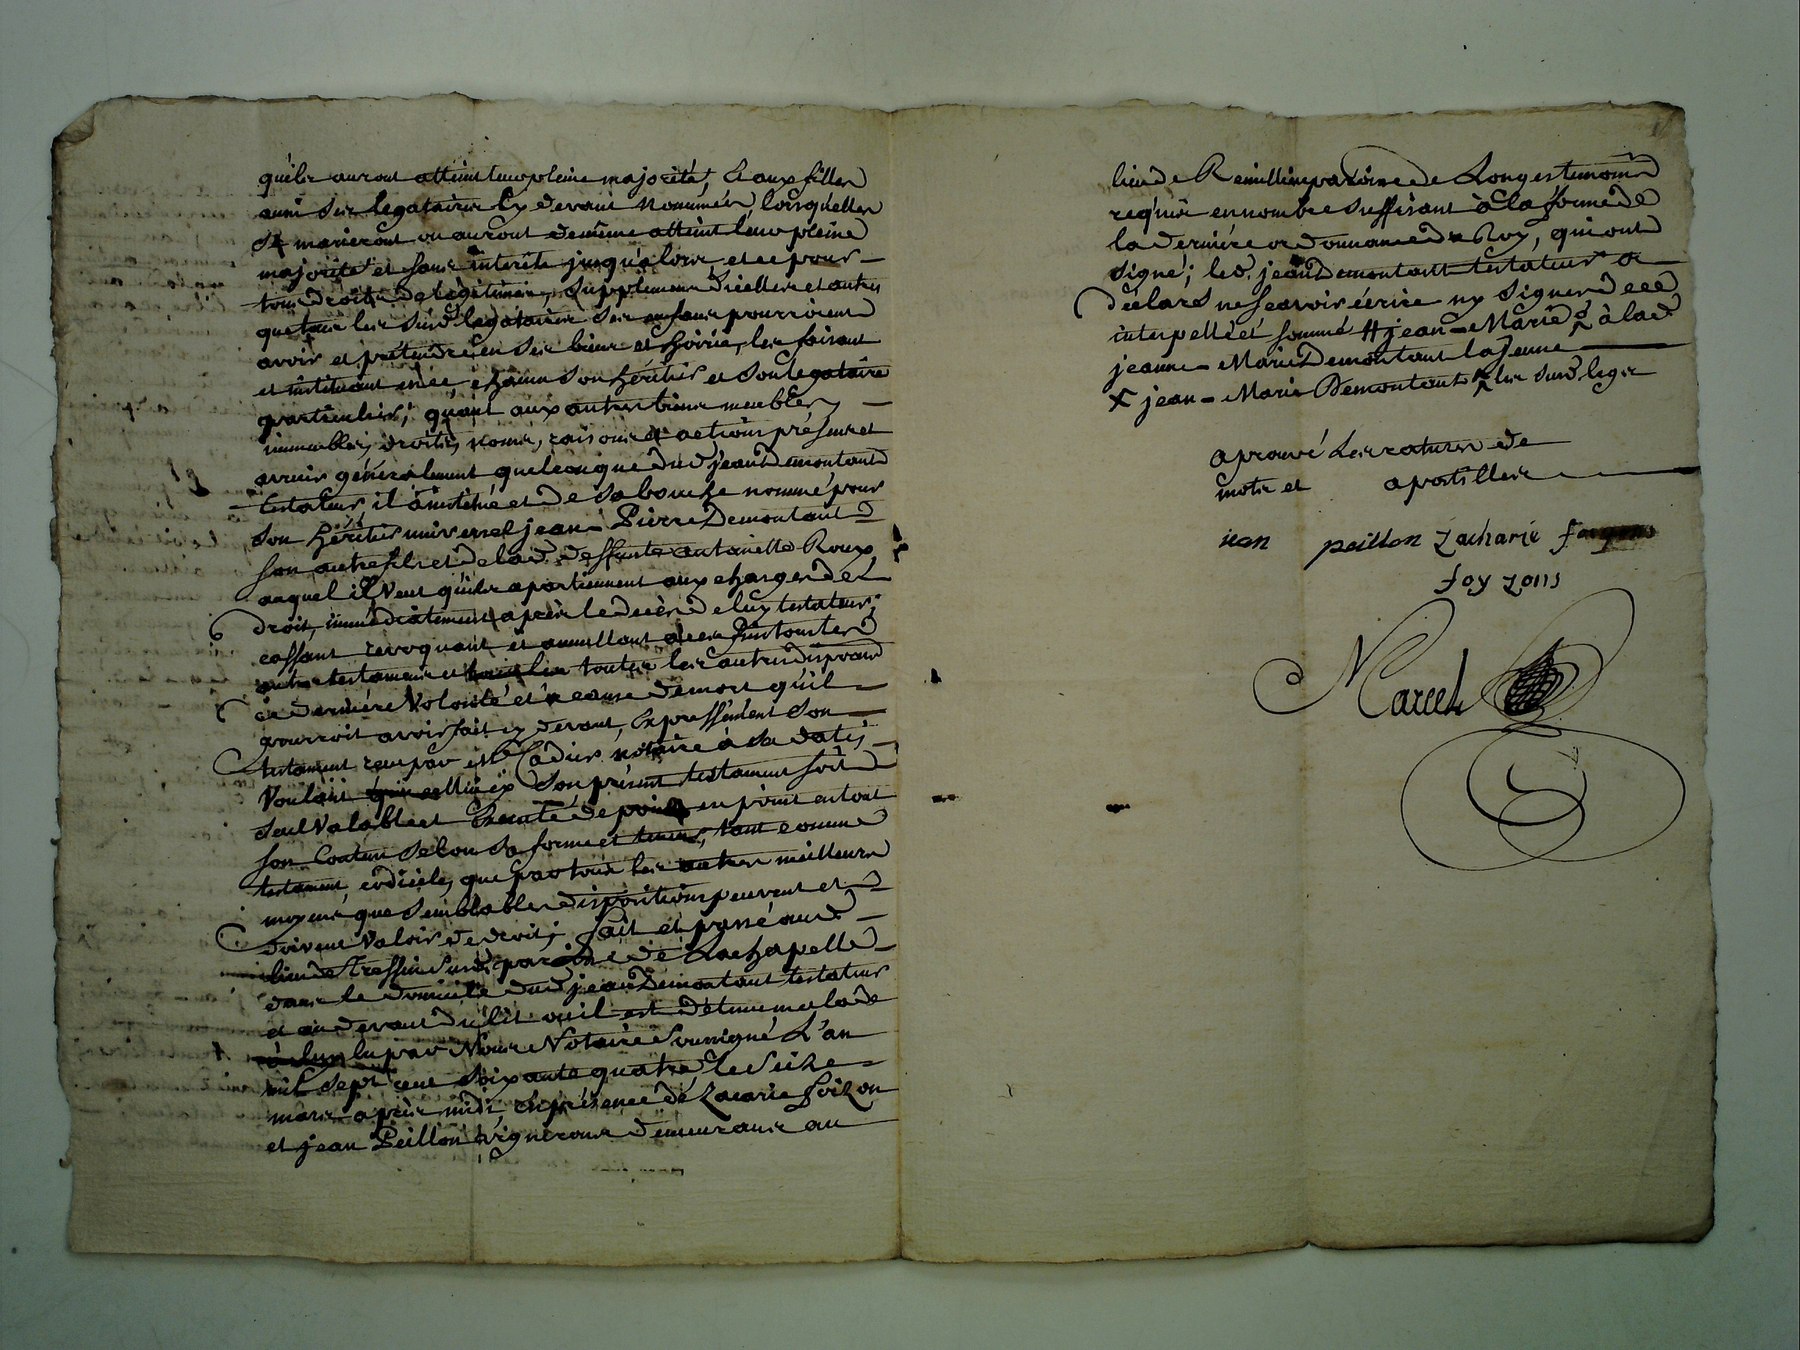 qu'ils auront atteint leur pleine majorité, & aux filles
aussi ses legataires cy devant nommées, lorsquelles
se marieront ou auront de même atteint leur pleine
majorité et sans interêts jusqu'alors et ce pour
tous droits de légitimes, supplement d'icelles et autres
que tous les susd. legataires ses enfans pourroient
avoir et prétendre en ses biens et hoirie, les faisant
et instituant en ce chacun son héritier et son legataire
particulier; quant aux autres biens meubles
immeubles, droits, noms, raisons et actions présents et
avenir généralement quelconque dud. jean Demontant
testateur, il a institué et de sa bouche nommé pour
son héritier universel jean-Pierre Demontant
son autre fils et de lad. deffunte antoinette Roux
auquel il veut qu'ils apartiennent aux charges de
droit, immédiatement après le decès de luy testateur;
cassant revoquant et annullant tous
autres testamens et toutes les autres dispions
de dernière volonté et a cause de mort qu'il
pourroit avoir fait cy devant, Expressément son
testament reçu par Me Cadier notaire à sa date;
voulant que son présent testament soit
seul valable et Executé de point en point en tout
son Contenu selon sa forme et teneur, tant comme
testament, codicile, que par tous les autres meilleurs
moyens que semblables dispositions peuvent et
doivent valoir de droit; fait et passé aud.
lieu de Tressin susd. paroisse de Lachapelle
dans le domicile dud. jean Demontant testateur
et au devant du lit ou il est détenu malade
à luy lu par Nous Notaire soussigné L'an
mil sept cent soixante quatre le seize
mars après midi, En présence de Zacarie foizon
et jean Peillon vignerons demeurans au
lieu de Remillieu paroisse de Longes temoins
requis en nombre suffisant à la forme de
la dernière ordonnance du Roy, qui ont
signé; led. jean Demontant testateur a
déclaré ne sçavoir écrire ny signer de ce
interpellé et sommé # jean-Marie à lad.
jeanne-Marie Demontant la jeune
X jean-Marie Demontant les susd. legs
aprouvé Les ratures de
mots et apostilles
iean peillon zacharie
foy zons
Marcel